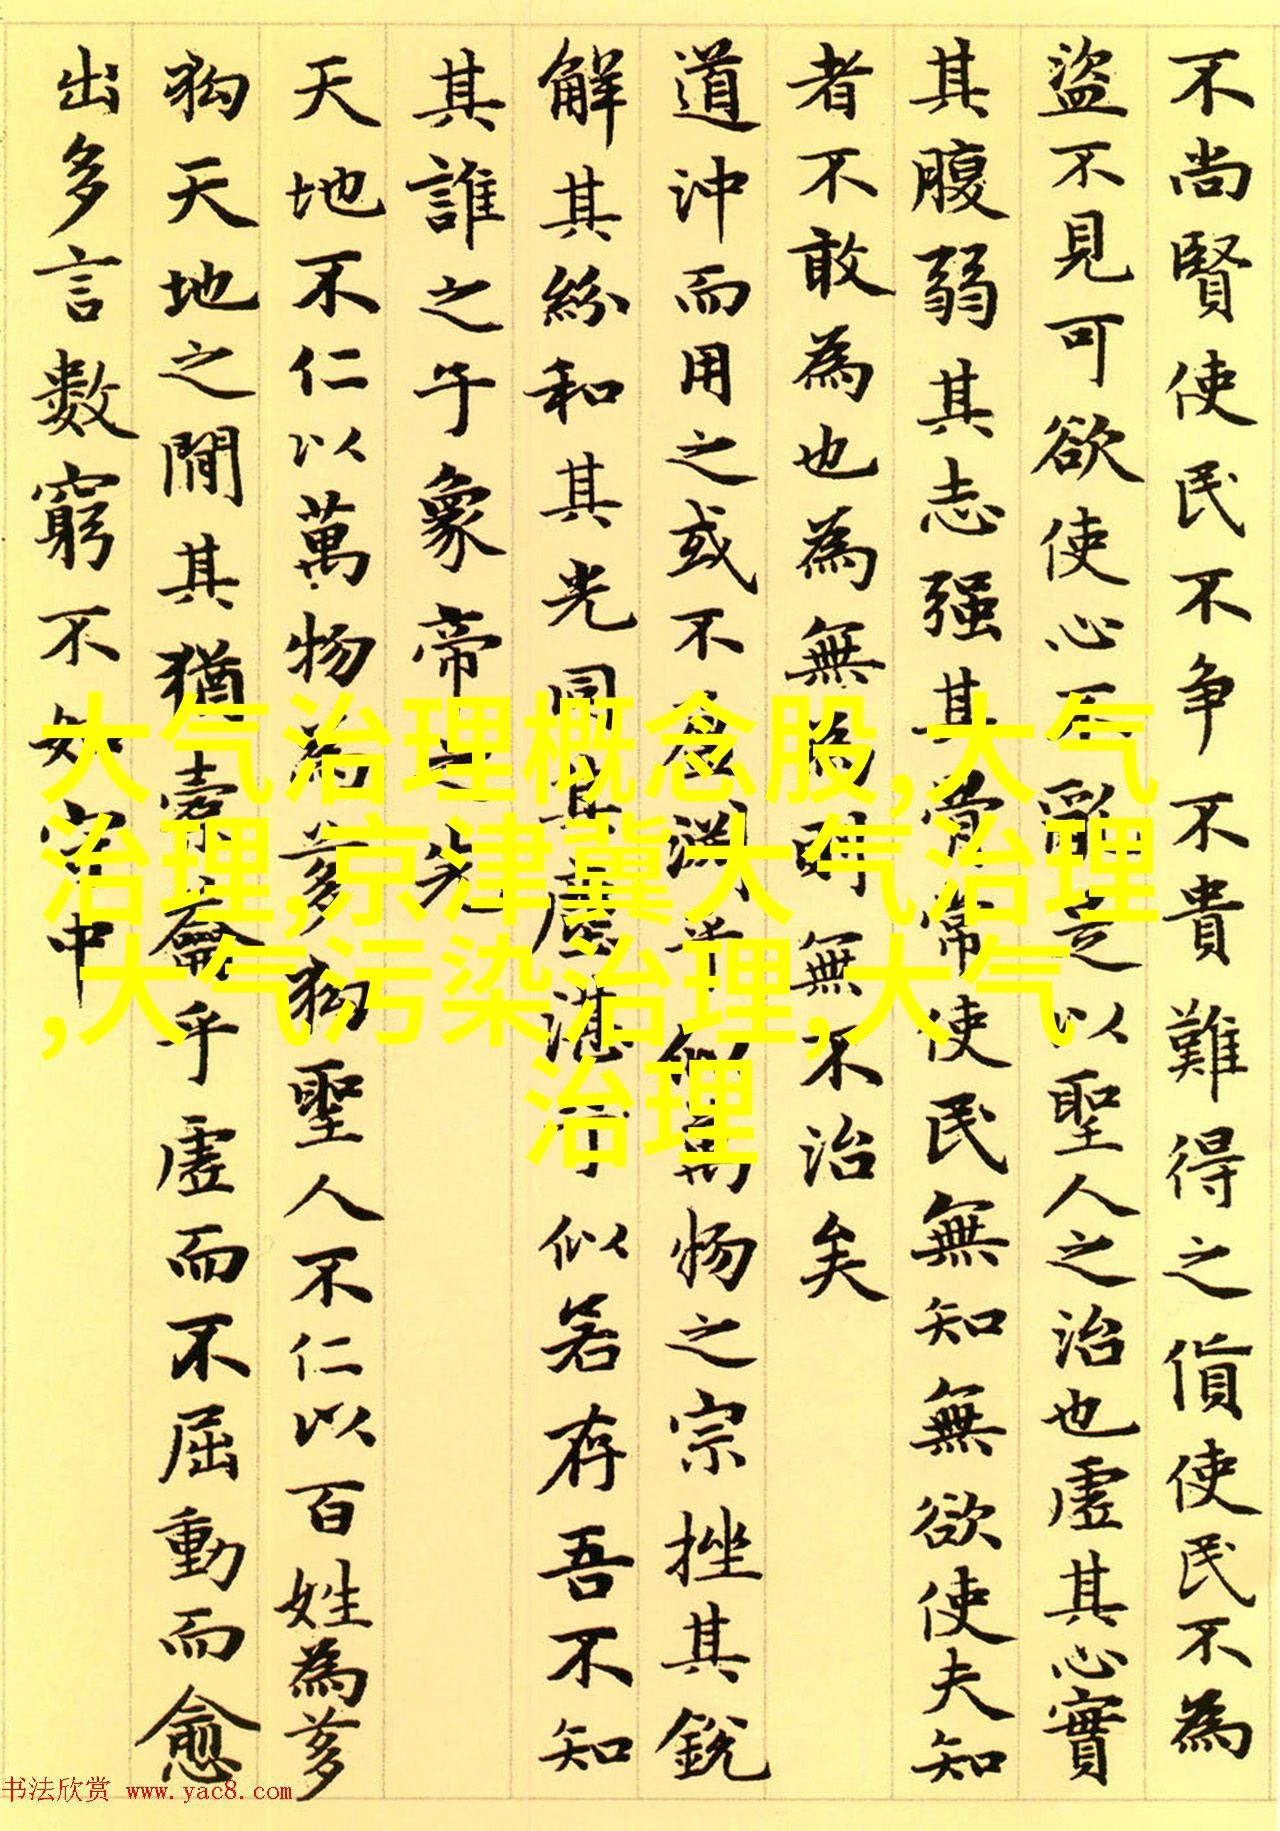 不尚賢使民不争不貴難得之貨使民不為
盜不見可欲使心不亂是以聖人之治也虛其心實
其腹弱其志强其骨常使民無知無欲使夫知
者不敢為也為無為則無不治矣
道沖而用之或不盈淵乎似萬物之宗挫其銳
解其紛和其光同其塵湛兮似若存吾不知
其誰之子象帝之先
天地不仁以萬物為芻狗聖人不仁以百姓為芻
狗天地之間其猶橐籥乎虛而不屈動而愈
出多言數窮不如守中
大气治理概念股,大气
治理,京津冀大气治理
,大气污染治理,大气
治理
书法欣赏 www.yac8.com